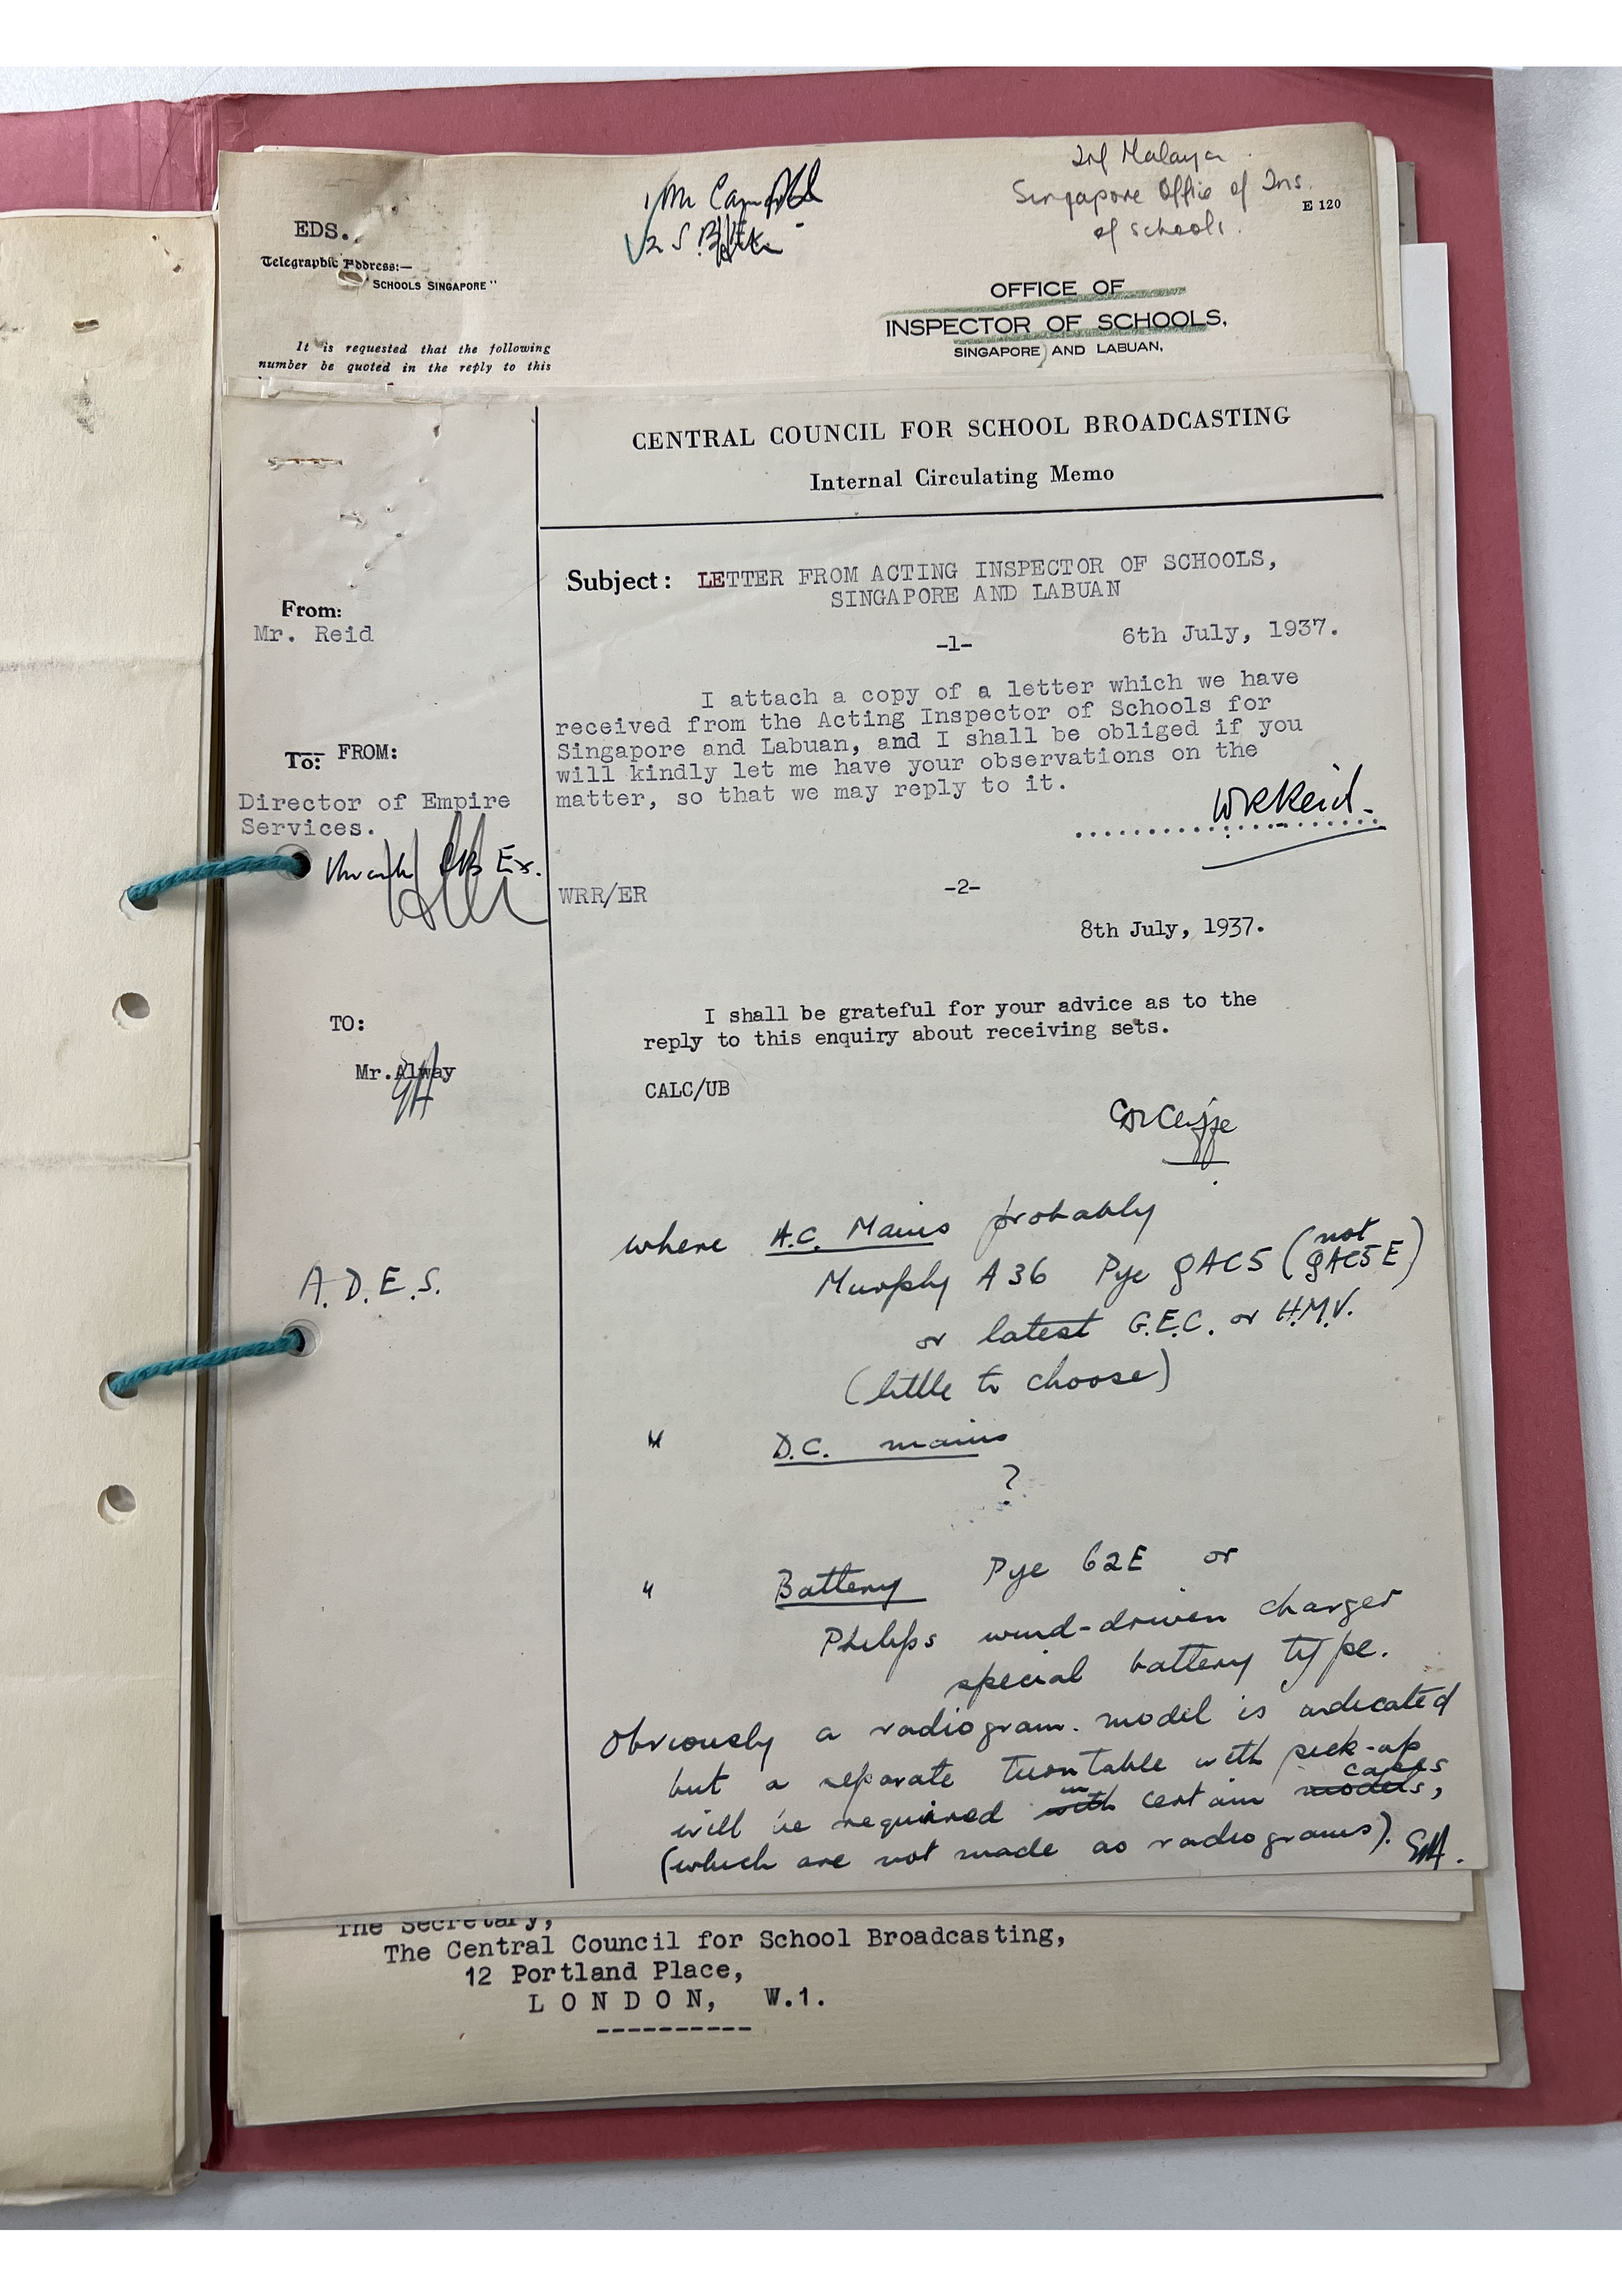 EDS.
Telegraphic Address:—
"SCHOOLS SINGAPORE"
It is requested that the following
number be quoted in the reply to this
1 Mr
2 S.
Inf Malaya.
Singapore Office of Ins.
of Schools.
E 120
OFFICE OF
INSPECTOR OF SCHOOLS,
SINGAPORE AND LABUAN,
CENTRAL COUNCIL FOR SCHOOL BROADCASTING
Internal Circulating Memo
Subject: LETTER FROM ACTING INSPECTOR OF SCHOOLS,
SINGAPORE AND LABUAN
From:
Mr. Reid
-1- 6th July, 1937.
I attach a copy of a letter which we have
received from the Acting Inspector of Schools for
Singapore and Labuan, and I shall be obliged if you
will kindly let me have your observations on the
matter, so that we may reply to it.
WRReid.
To: FROM:
Director of Empire
Services.
through Ex.
WRR/ER -2-
8th July, 1937.
TO:
Mr. Alway
I shall be grateful for your advice as to the
reply to this enquiry about receiving sets.
CALC/UB
A.D.E.S.
where A.C. Mains probably
Murphy A36 Pye QAC5 (not QAC5E)
or latest G.E.C. or H.M.V.
(little to choose)
" D.C. mains
?
" Battery Pye 62E or
Philips wind-driven charger
special battery type.
Obviously a radiogram. model is indicated
but a separate turntable with pick-up
will be required with in certain models, cases
(which are not made as radiograms).
The Secretary,
The Central Council for School Broadcasting,
12 Portland Place,
LONDON, W.1.